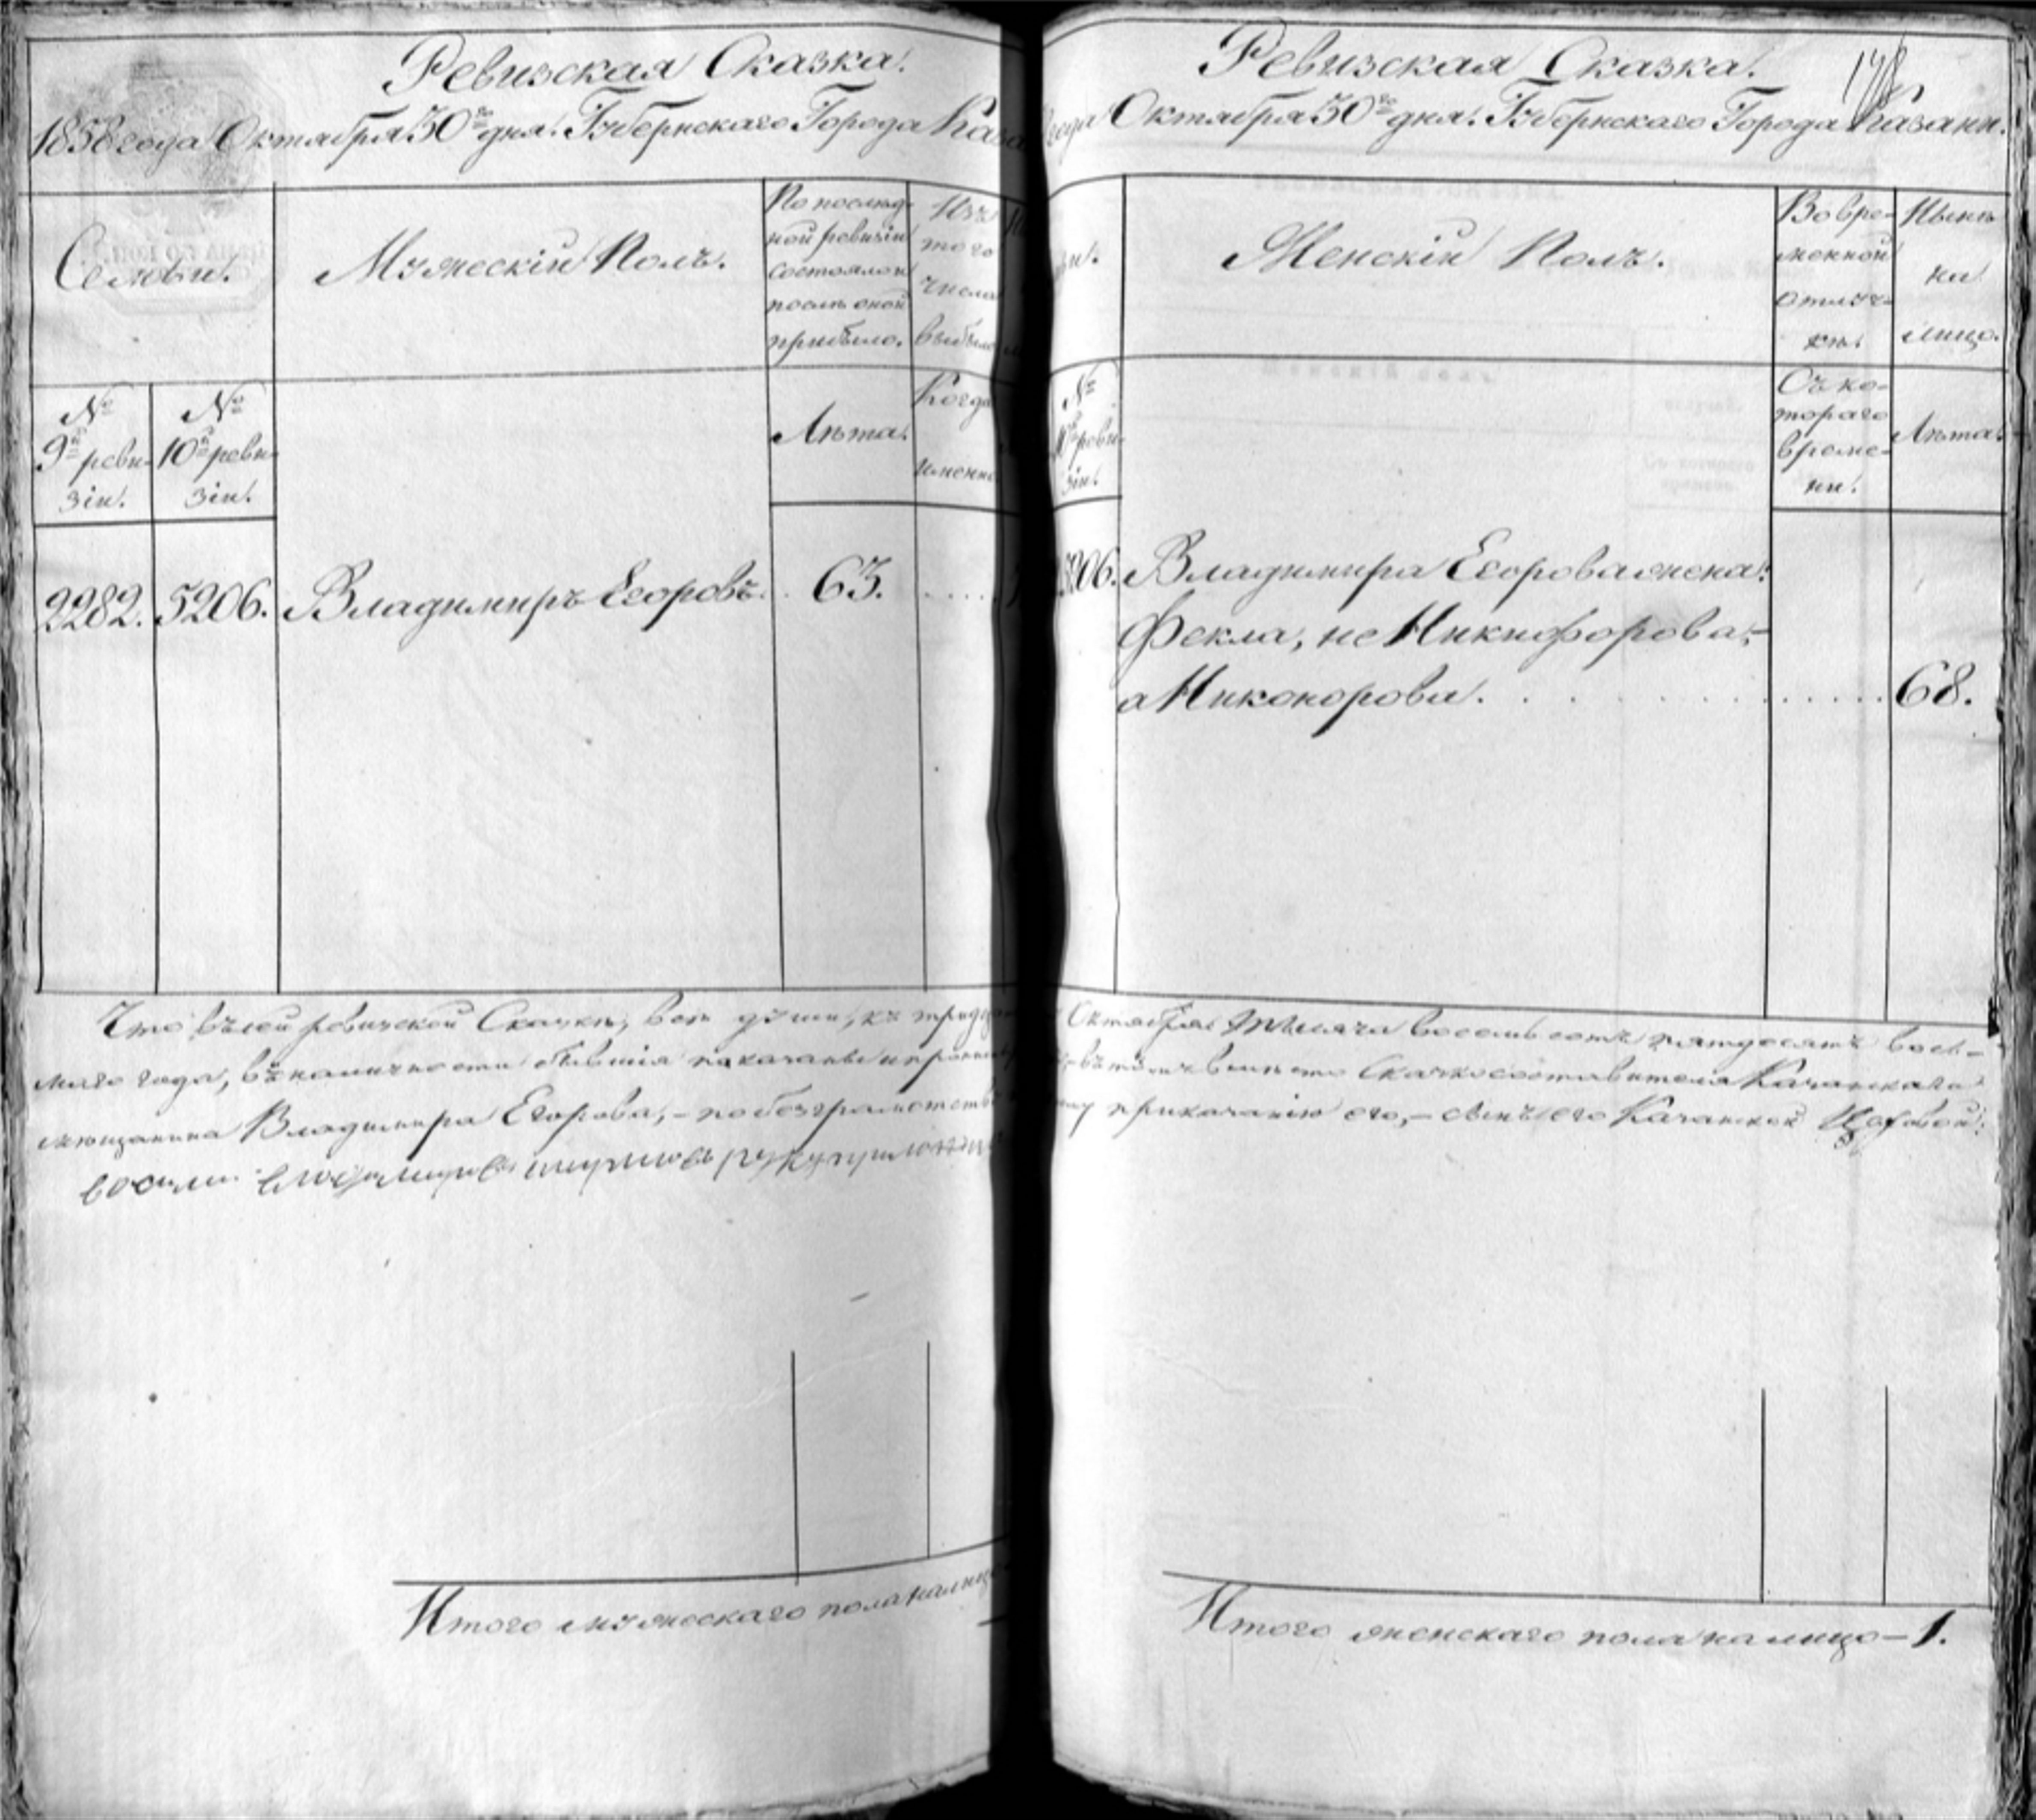 Ревизская Сказка.
1858 года Октября 30го дня. Губернскаго Города Каза
Семьи.
Мужескій Полъ.
По послѣд-
ной ревизіи
состояло и
послѣ оной
прибыло.
Изъ
того
числа
выбыло
№
9й реви-
зіи.
№
10й реви-
зіи.
Лѣта.
Когда
именно
2282. 5206. Владимиръ Егоровъ. 63.
Что въ сей ревизской Сказкѣ, всѣ души, къ
маго года, въ наличности бывшія показаны и
мещанина Владимира Егорова, – по безграмотству
руку приложилъ
Итого мужескаго пола налицо
Ревизская Сказка.
178
года Октября 30го дня. Губернскаго Города Казани.
Женскій Полъ.
Во вре-
менной
отлуч-
кѣ.
Нынѣ
на
лицо.
№
10й реви-
зіи.
Съ ко-
тораго
време-
ни.
Лѣта.
5206. Владимира Егорова жена:
Фекла, не Никифорова,-
а Никонорова. 68.
Октября тысяча восемь сотъ пятдесятъ вось-
Сказкосоставителя Казанскаго
приказанію его, – Казанской Цеховой:
Итого женскаго пола на лицо – 1.